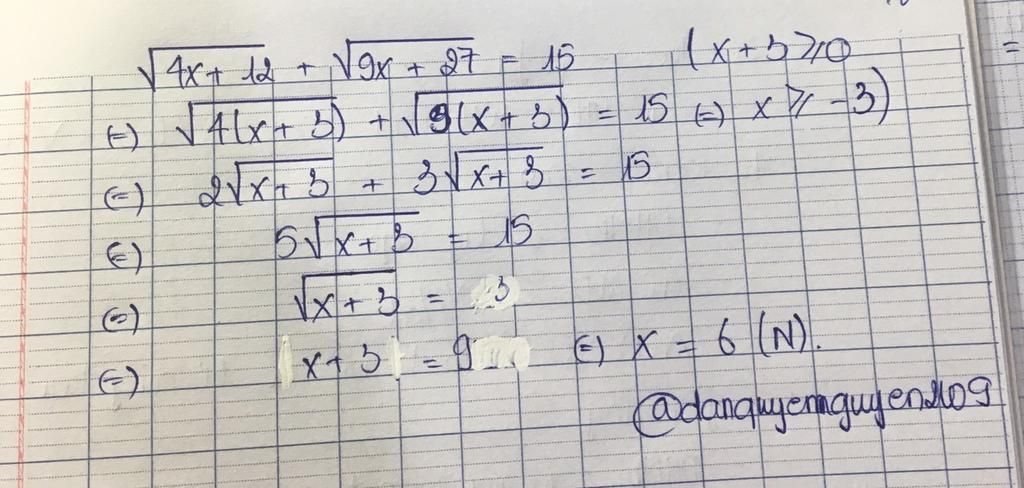 √4x + 12 + √9x + 27 = 15 (x + 3 ⩾ 0
(=) √4(x + 3) + √9(x + 3) = 15 (=) x ⩾ -3)
(=) 2√x + 3 + 3√x + 3 = 15
(=) 5√x + 3 = 15
(=) √x + 3 = 3
(=) x + 3 = 9 (=) x = 6 (N).
@danquyennguyen2109
=